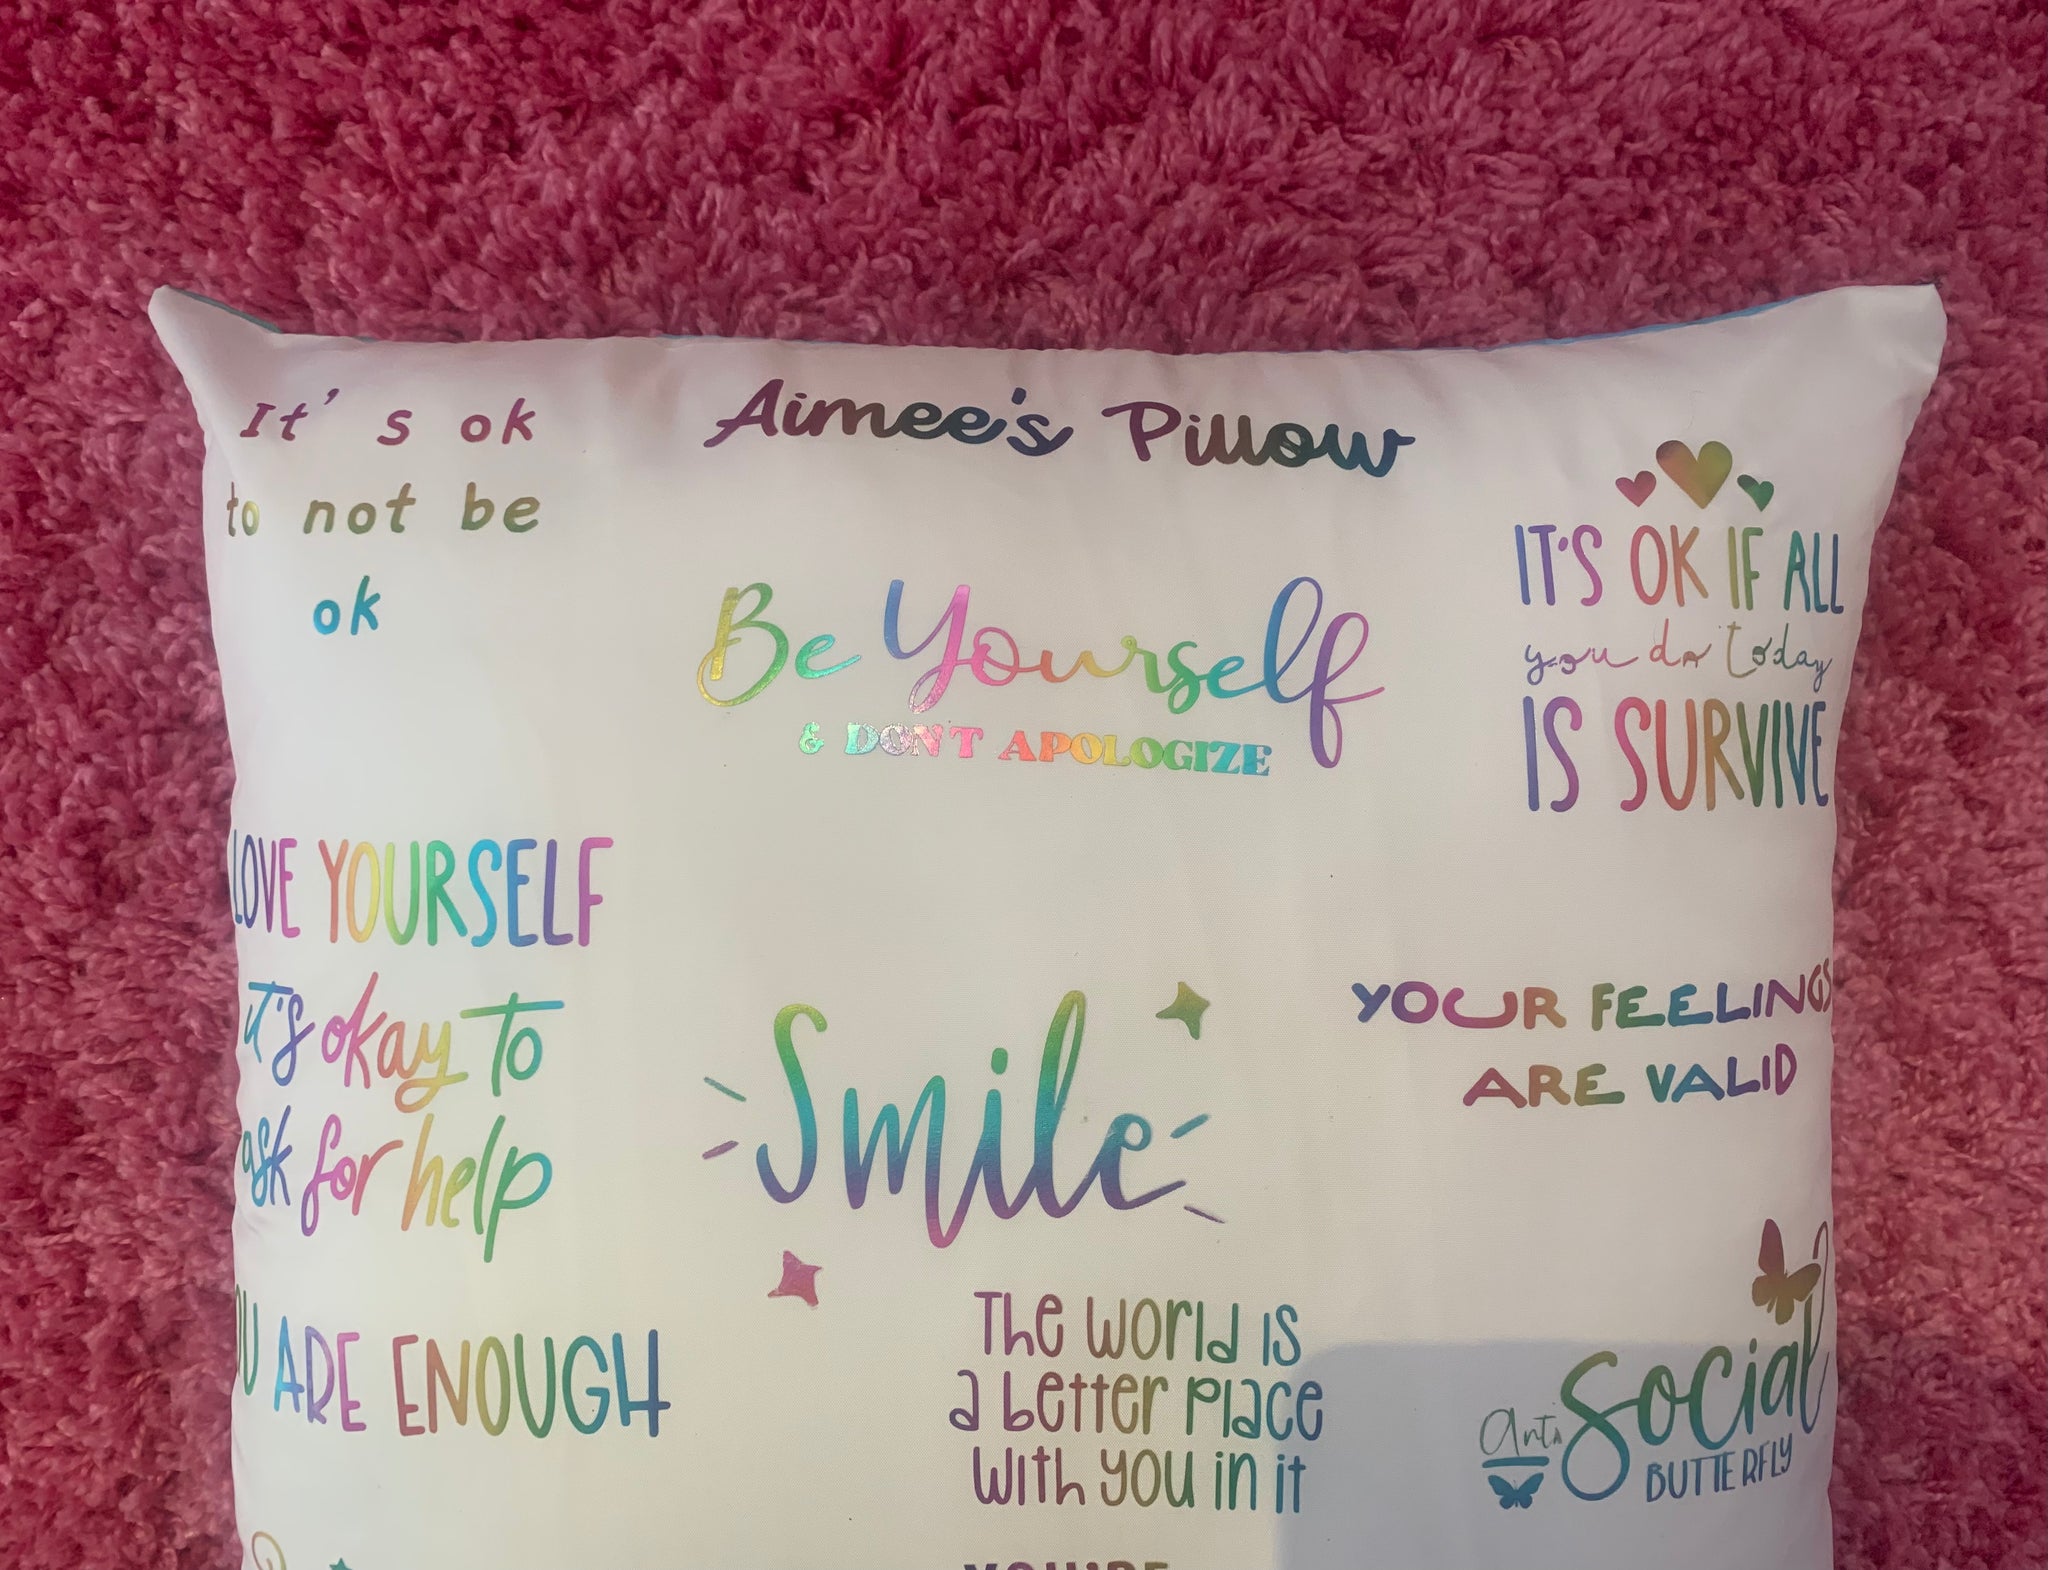 It's ok
to not be
ok
Aimee's Pillow
Be Yourself
& DON'T APOLOGIZE
IT'S OK IF ALL
you do today
IS SURVIVE
LOVE YOURSELF
it's okay to
ask for help
Smile
YOUR FEELINGS
ARE VALID
YOU ARE ENOUGH
The world is
a better place
with you in it
anti social
BUTTERFLY
YOU'RE